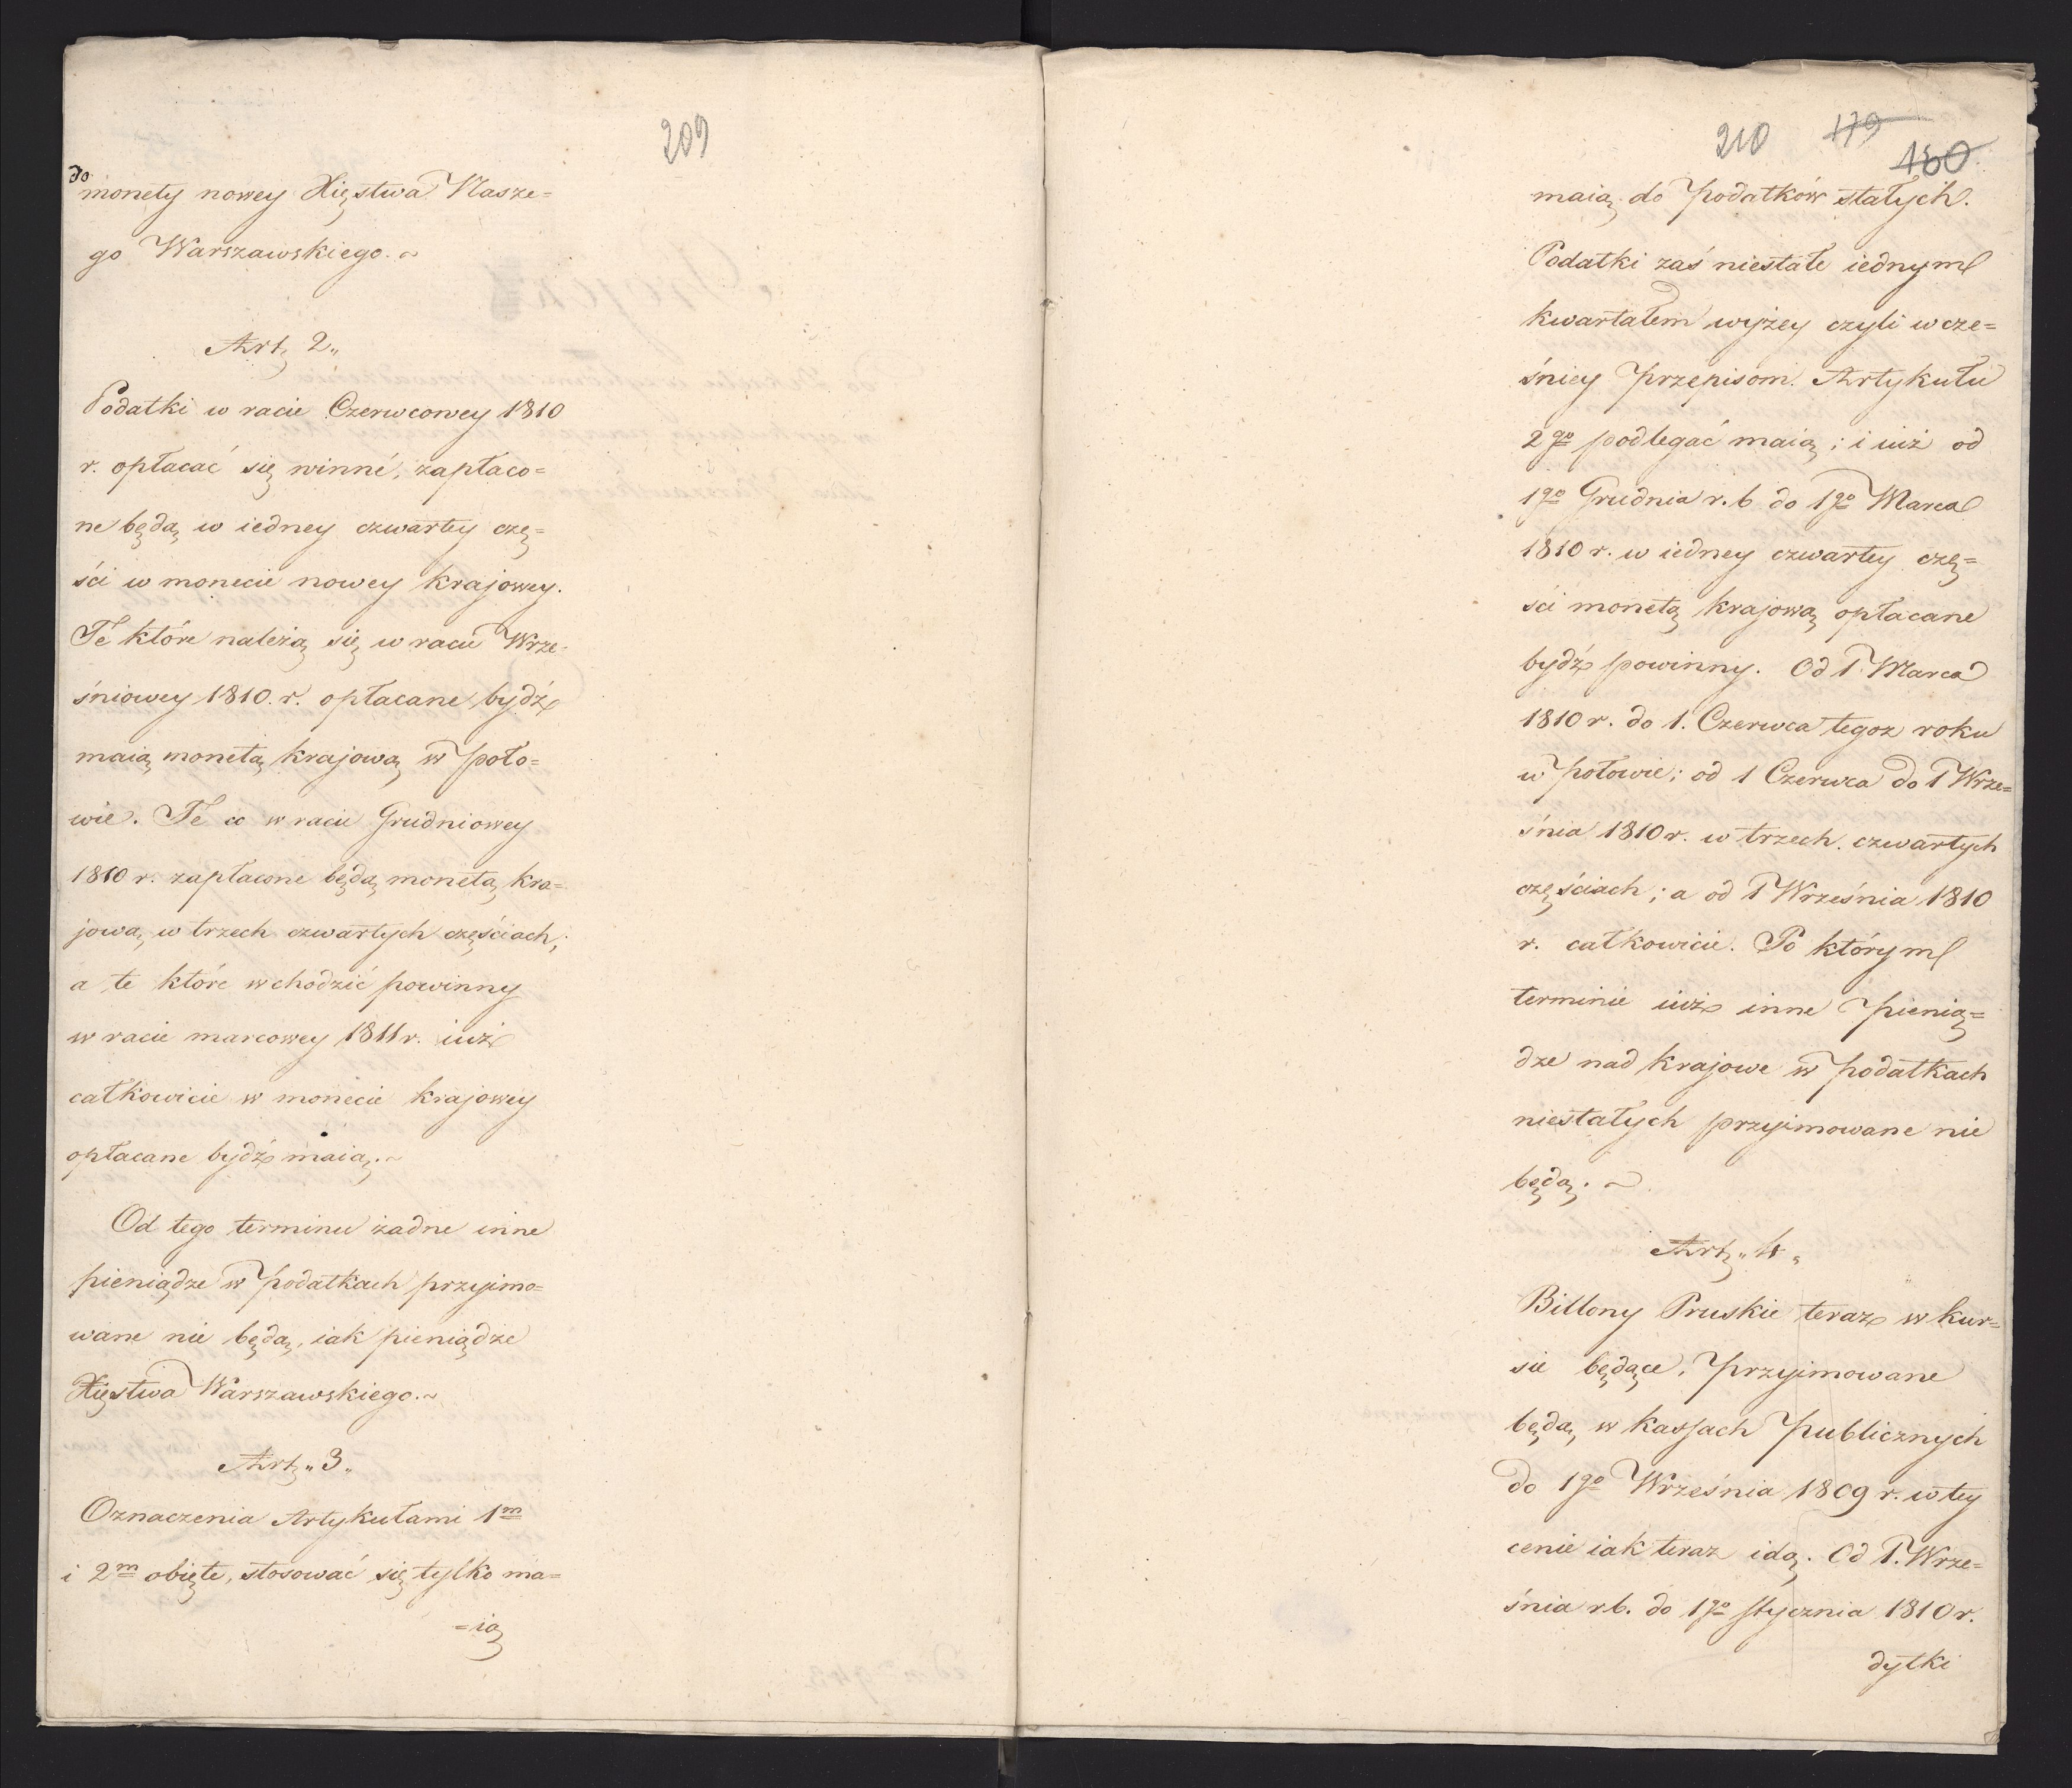 209
do
monety nowey Xięstwa Nasze=
go Warszawskiego. ~
Art, 2„
Podatki w racie Czerwcowey 1810
r. opłacać się winné, zapłaco=
ne będą w iedney czwartey czę=
ści w monecie nowey krajowey.
Té które należą się w racie Wrze=
śniowey 1810. r. opłacane bydź
maią monetą krajową w poło=
wie. Te co w racie Grudniowey
1810 r. zapłacone będą monetą kra=
jową, w trzech czwartych częściach,
a te które wchodzić powinny
w racie marcowey 1811 r. iuż
całkowicie w monecie krajowey
opłacane bydź maią. ~
Od tego terminu żadne inne
pieniądze w podatkach przyimo=
wane nie będą, iak pieniądze
Xięstwa Warszawskiego. ~
Art, „ 3 „
Oznaczenia Artykułami 1m
i 2m obięte, stosować się tylko ma=
=ią
210 179
180
maią do podatków stałych.
Podatki zaś niestałe iednym
kwartałem wyżey czyli wcze=
śniey przepisom Artykułu
2go podlegać maią; i iuż od
1go Grudnia r. b do 1go Marca
1810 r. w iedney czwartey czę=
ści monetą krajową opłacane
bydź powinny. Od 1 Marca
1810 r. do 1. Czerwca tegoz roku
w połowie; od 1 Czerwca do 1 Wrze=
śnia 1810 r. w trzech czwartych
częściach; a od 1 Września 1810
r. całkowicie. Po którym
terminie iuż inne pienią=
dze nad krajowe w podatkach
niestałych przyimowane nie
będą. ~
Art, „ 4 „
Billony Pruskie teraz w kur=
sie będące, przyimowane
będą w kassach publicznych
do 1go Września 1809 r. w tey
cenie iak teraz idą. Od 1. Wrze=
śnia r b. do 1go stycznia 1810 r.
dytki